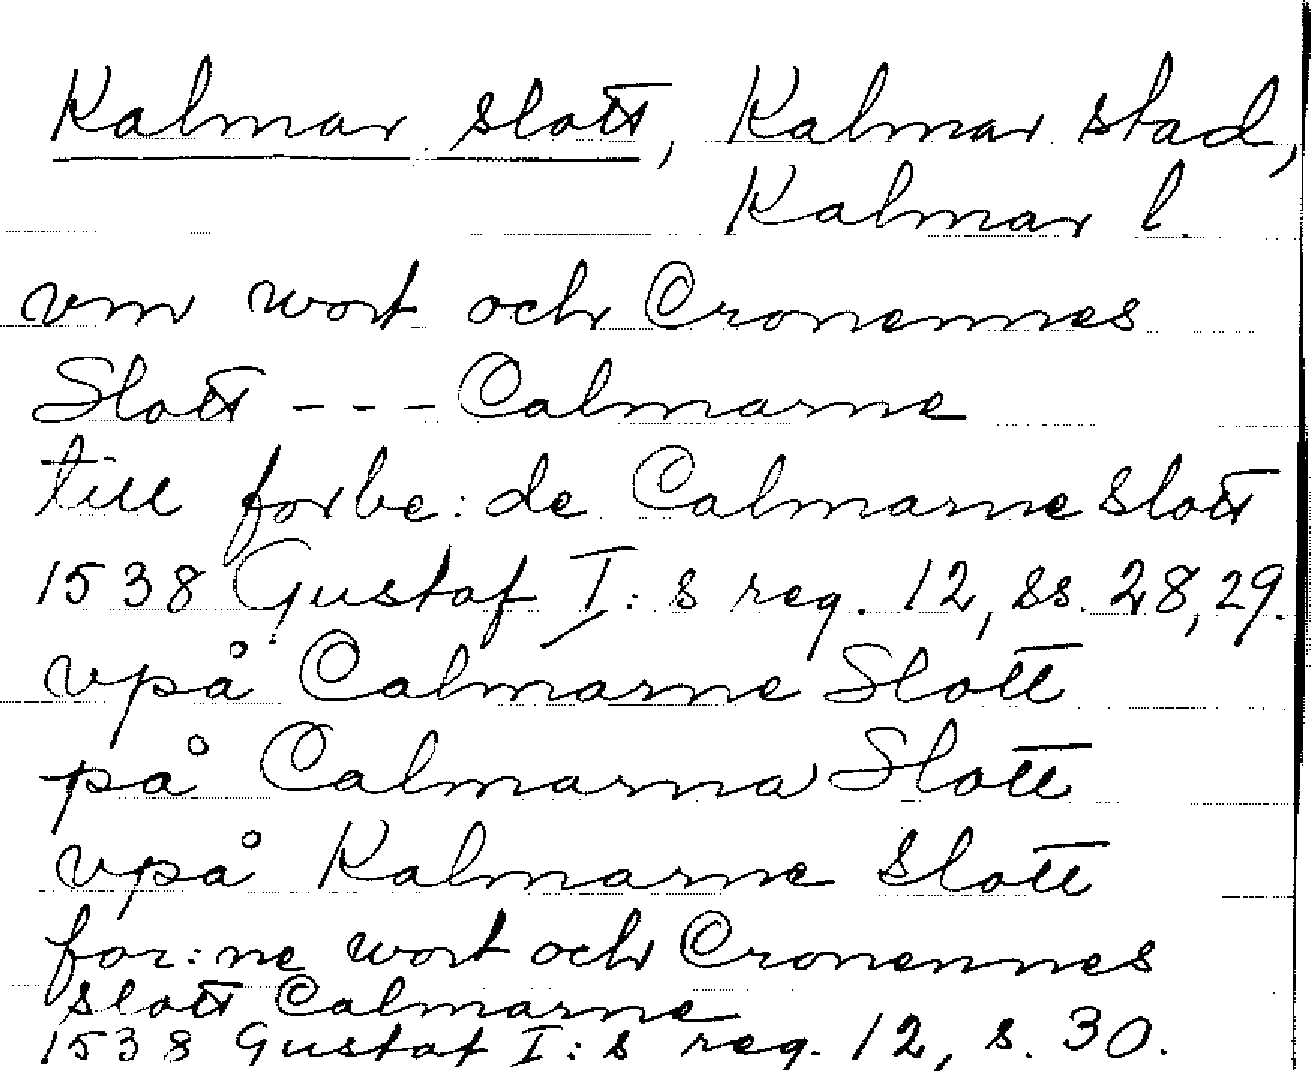 Kalmar slott, Kalmar stad,
Kalmar l.
vm wort och Cronennes
Slott --- Calmarne
till forbe:de Calmarne slott
1538 Gustaf I:s reg. 12, ss. 28, 29.
vpå Calmarne Slott
på Calmarna Slott
vpå Kalmarne slott
for:ne wort och Cronennes
slott Calmarne
1538 Gustaf I:s reg. 12, s. 30.